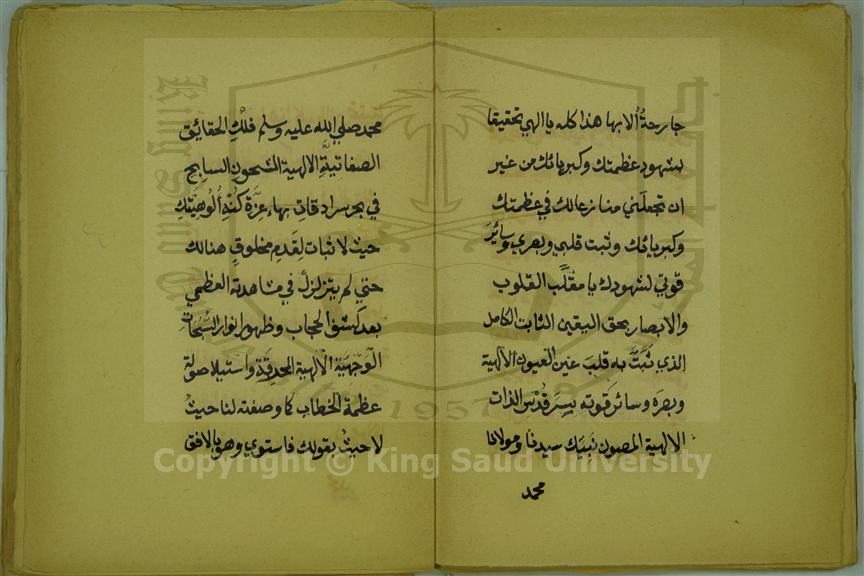 جارحةُ ألابها هذا كله يا الهي تحقيقا
لشهود عظمتك وكبريائك من غير
ان تجعلني منازعالك في عظمتك
وكبريائك وثبت قلبي وبصري وسائر
قوتي لشهودك يا مقلّب القلوب
والابصار بحق اليقين الثابت الكامل
الذي ثبَّتَّ به قلبَ عين العيون الالهية
وبصره وسائر قوته بسر قدس الذات
الالهية المصون نبيك سيدنا ومولانا
محمد
محمد صلي الله عليه وسلم فلك الحقايق
الصفاتيةِ الالهية المشحون السابح
في بحر سرادقات بهاء عزة كنه ألوهيتك
حيث لا ثبات لقدم مخلوق هنالك
حتي لم يتزلزل في مشاهدته العظمي
بعد كشف الحجاب وظهور انوار السبحات
الوجهية الالهية المحدقة واستيلا صولة
عظمة الخطاب كما وصفته لنا حيث
لا حيث بقولك فاستوي وهو بالافق
Copyright © King Saud University
1957